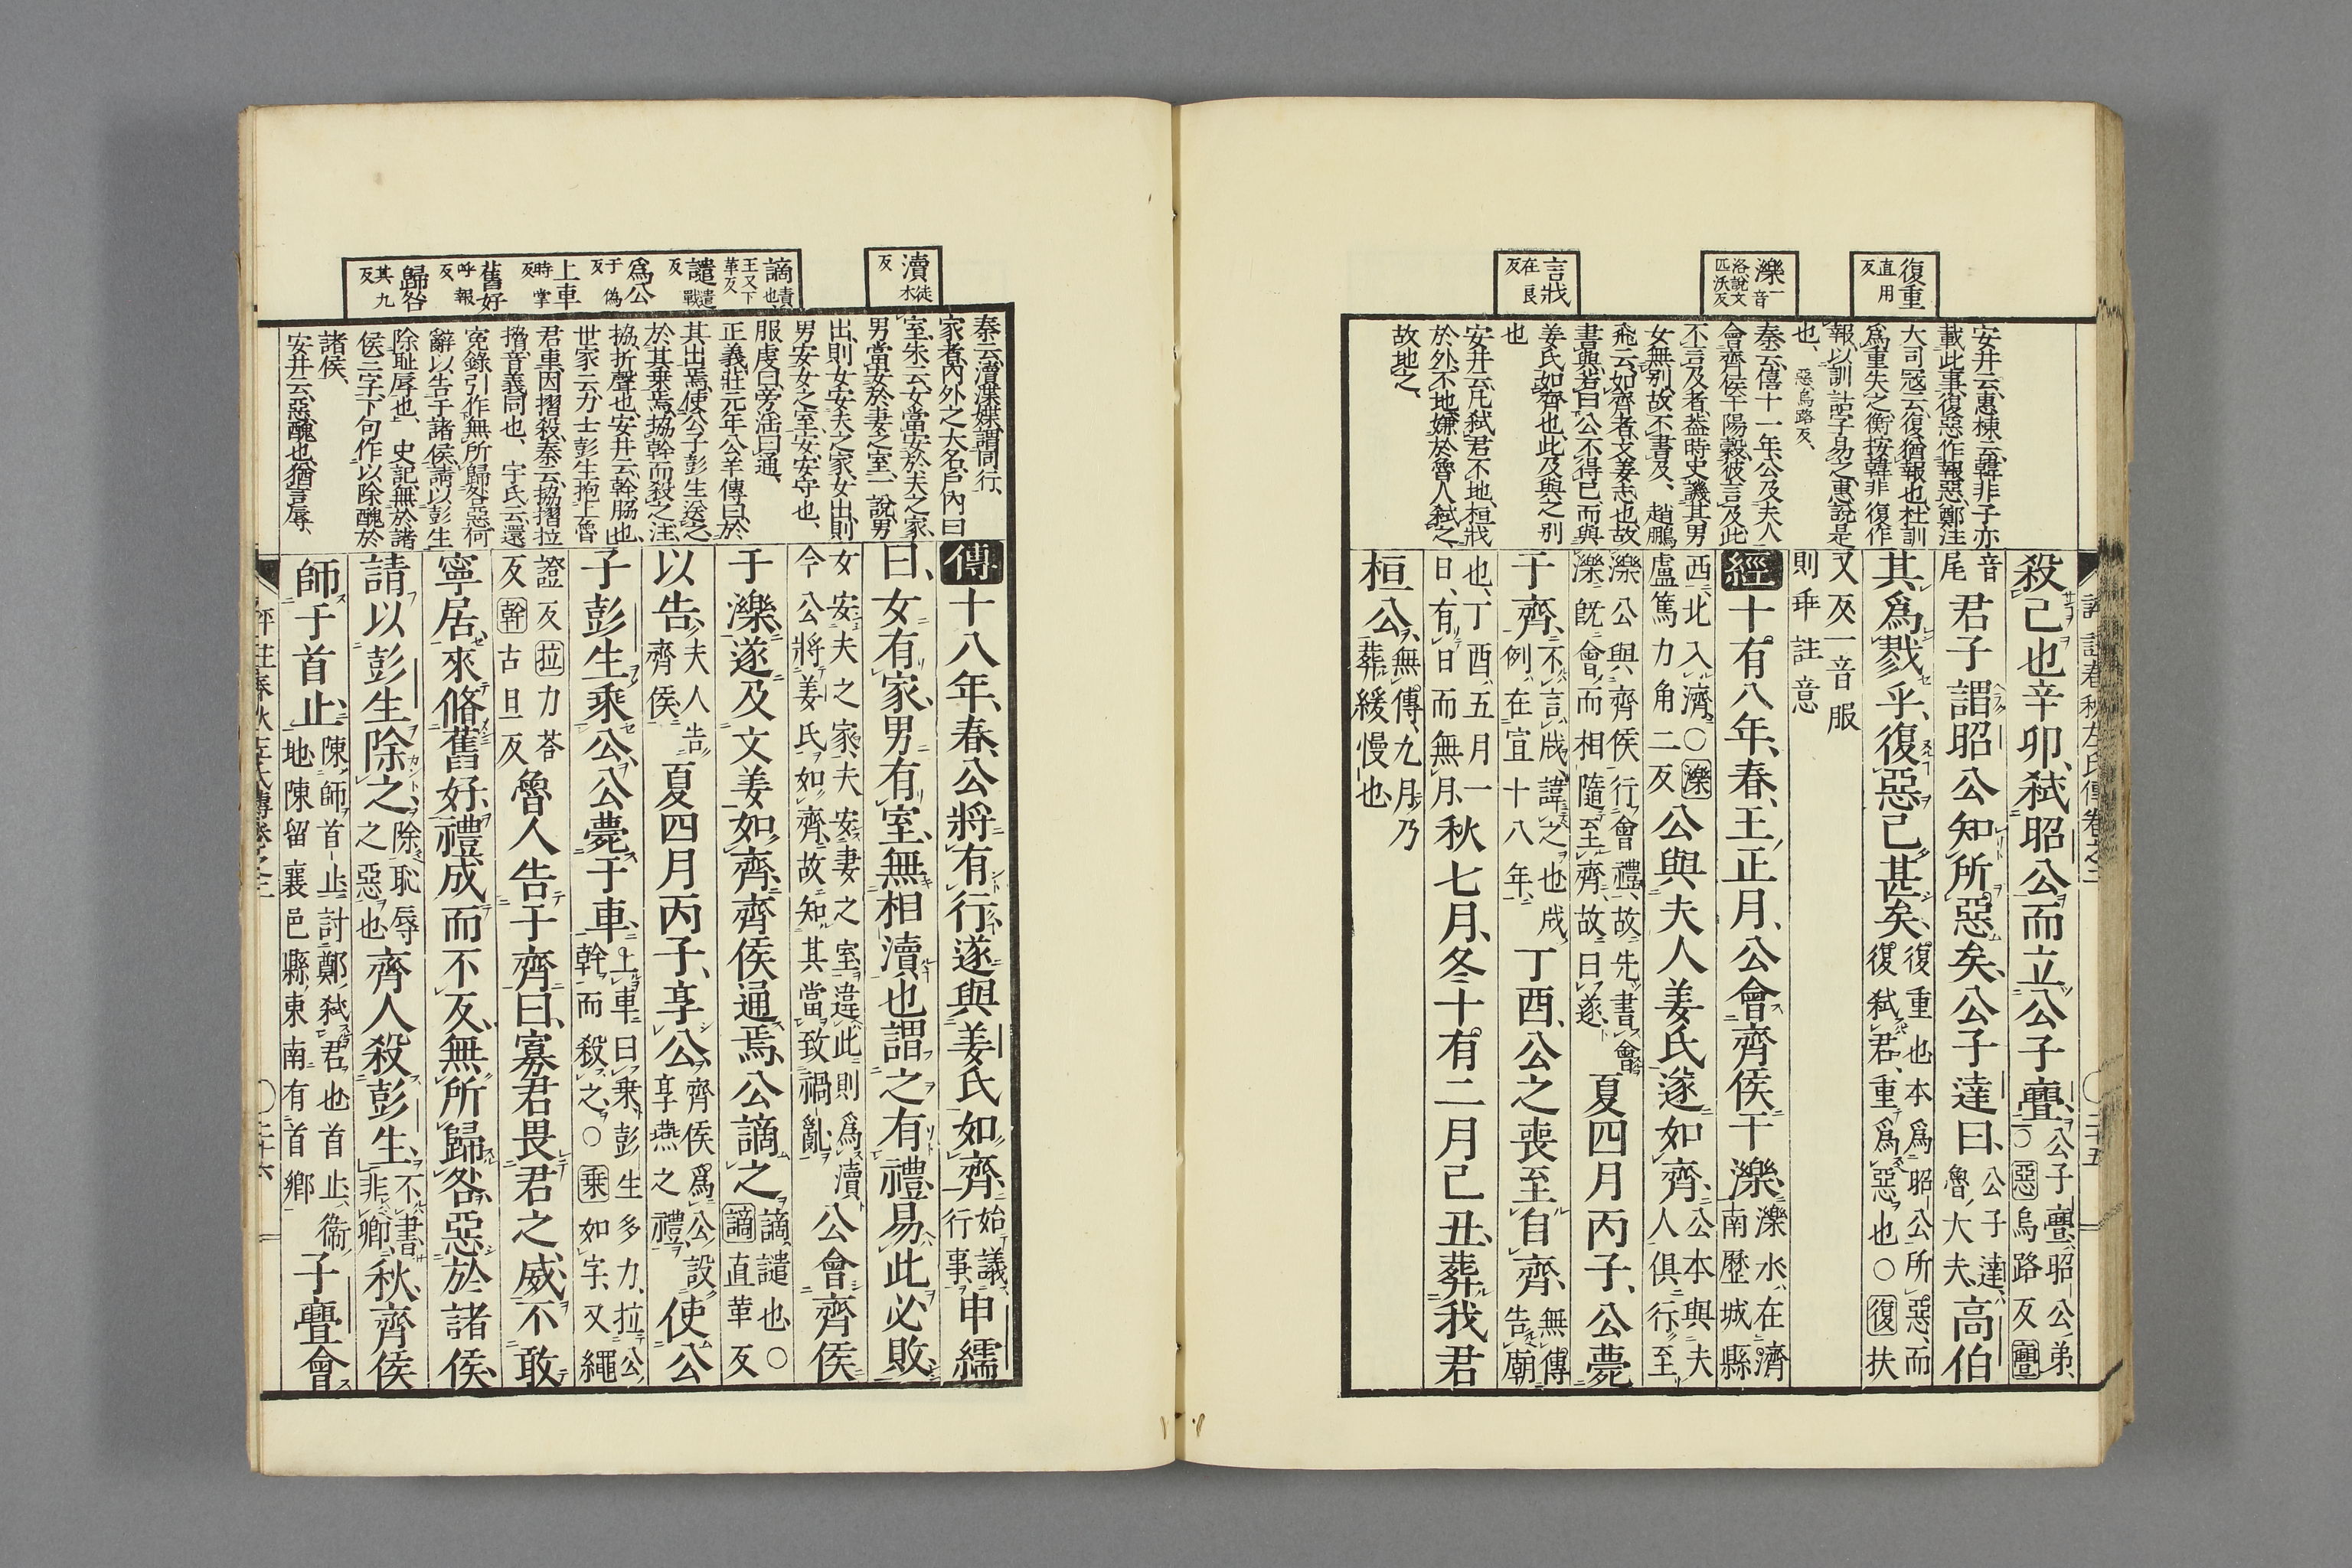 復重
直用
反
濼一音
洛說文
匹沃反
言戕
在良
反
安井云、惠棟云、韓非子亦
載此事、復惡作報惡、鄭注
大司寇云、復猶報也、杜訓
爲重失之、衡按韓非復作
報、以訓詁字易之、惠說是
也、惡、烏路反、
秦云、僖十一年、公及夫人
會齊侯于陽穀、彼言及、此
不言及者、蓋時史譏其男
女無別、故不書及、趙鵬
飛云、如齊者、文姜志也、故
書與、若曰公不得已而與
姜氏如齊也、此及與之別
也
安井云、凡弑君不地、桓戕
於外、不地、嫌於魯人弑之、
故地之、
殺己也辛卯、弑昭公而立公子亹、
公子亹、昭公弟、
○惡烏路反亹
音
尾
君子謂昭公知所惡矣、公子達曰、
公子達、
魯大夫、
高伯
其爲戮乎、復惡已甚矣、
復重也本爲昭公所惡、而
復弑君、重爲惡也○復扶
又反一音服
則乖註意
經十有八年、春、王正月、公會齊侯于濼、
濼水、在濟
南歷城縣
西北入濟○濼
盧篤力角二反
公與夫人姜氏遂如齊、
公本與夫
人俱行、至
濼公與齊侯行會禮、故先書會
濼既會而相隨至齊、故曰遂、
夏四月丙子、公薨
于齊、
不言戕、諱之也戕
例在宣十八年、
丁酉、公之喪至自齊、
無傳
告廟
也、丁酉、五月一
日、有日而無月、
秋七月、冬十有二月己丑、葬我君
桓公、
無傳、九月乃
葬緩慢也、
評註春秋左氏傳卷之二
○二十五
瀆徒
木
反
謫責也
王又下
革反
譴遣
戰
反
爲公
于僞
反
上車
時掌
反
舊好
呼報
反
歸咎
其九
反
秦云、瀆、渫媟、謂同行、
家者、內外之大名、戶內曰
室、朱云、女當安於夫之家、
男當安於妻之室、一說、男
出、則女安夫之家、女出、則
男安女之室、安、安守也、
服虔曰、旁淫曰通、
正義、莊元年公羊傳曰、於
其出焉、使公子彭生送之、
於其乘焉、拹幹而殺之、注
拹、折聲也、安井云、幹、脇也、
世家云、力士彭生抱上魯
君車、因摺殺、秦云、拹、摺、拉
擸、音義同也、宇氏云、還
寃錄引作無所歸咎惡何
辭以告于諸侯、請以彭生
除恥辱也、史記、無於諸
侯三字、下句作以除醜於
諸侯、
安井云、惡、醜也、猶言辱、
傳十八年、春、公將有行、遂與姜氏如齊、
始議
行事、
申繻
曰、女有家、男有室、無相瀆也、謂之有禮、易此必敗、
女安夫之家、夫安妻之室、違此則爲瀆
今公將姜氏如齊、故知其當致禍亂、
公會齊侯
于濼、遂及文姜如齊、齊侯通焉、公謫之、
謫、譴也、○
謫直革反
以告、
夫人告
齊侯、
夏四月丙子、享公、
齊侯爲公設
享燕之禮、
使公
子彭生乘公、公薨于車、
上車曰乘、彭生多力、拉公
幹而殺之、○乘如字、又繩
證反拉力荅
反幹古旦反
魯人告于齊曰、寡君畏君之威、不敢
寧居、來脩舊好、禮成而不反、無所歸咎、惡於諸侯、
請以彭生除之、
除恥辱
之惡也
齊人殺彭生、
不書、
非卿、
秋、齊侯
師于首止、
陳師首止、討鄭弑君也首止、衞
地陳留襄邑縣、東南有首鄉
子亹會
評註春秋左氏傳卷之二
○二十六